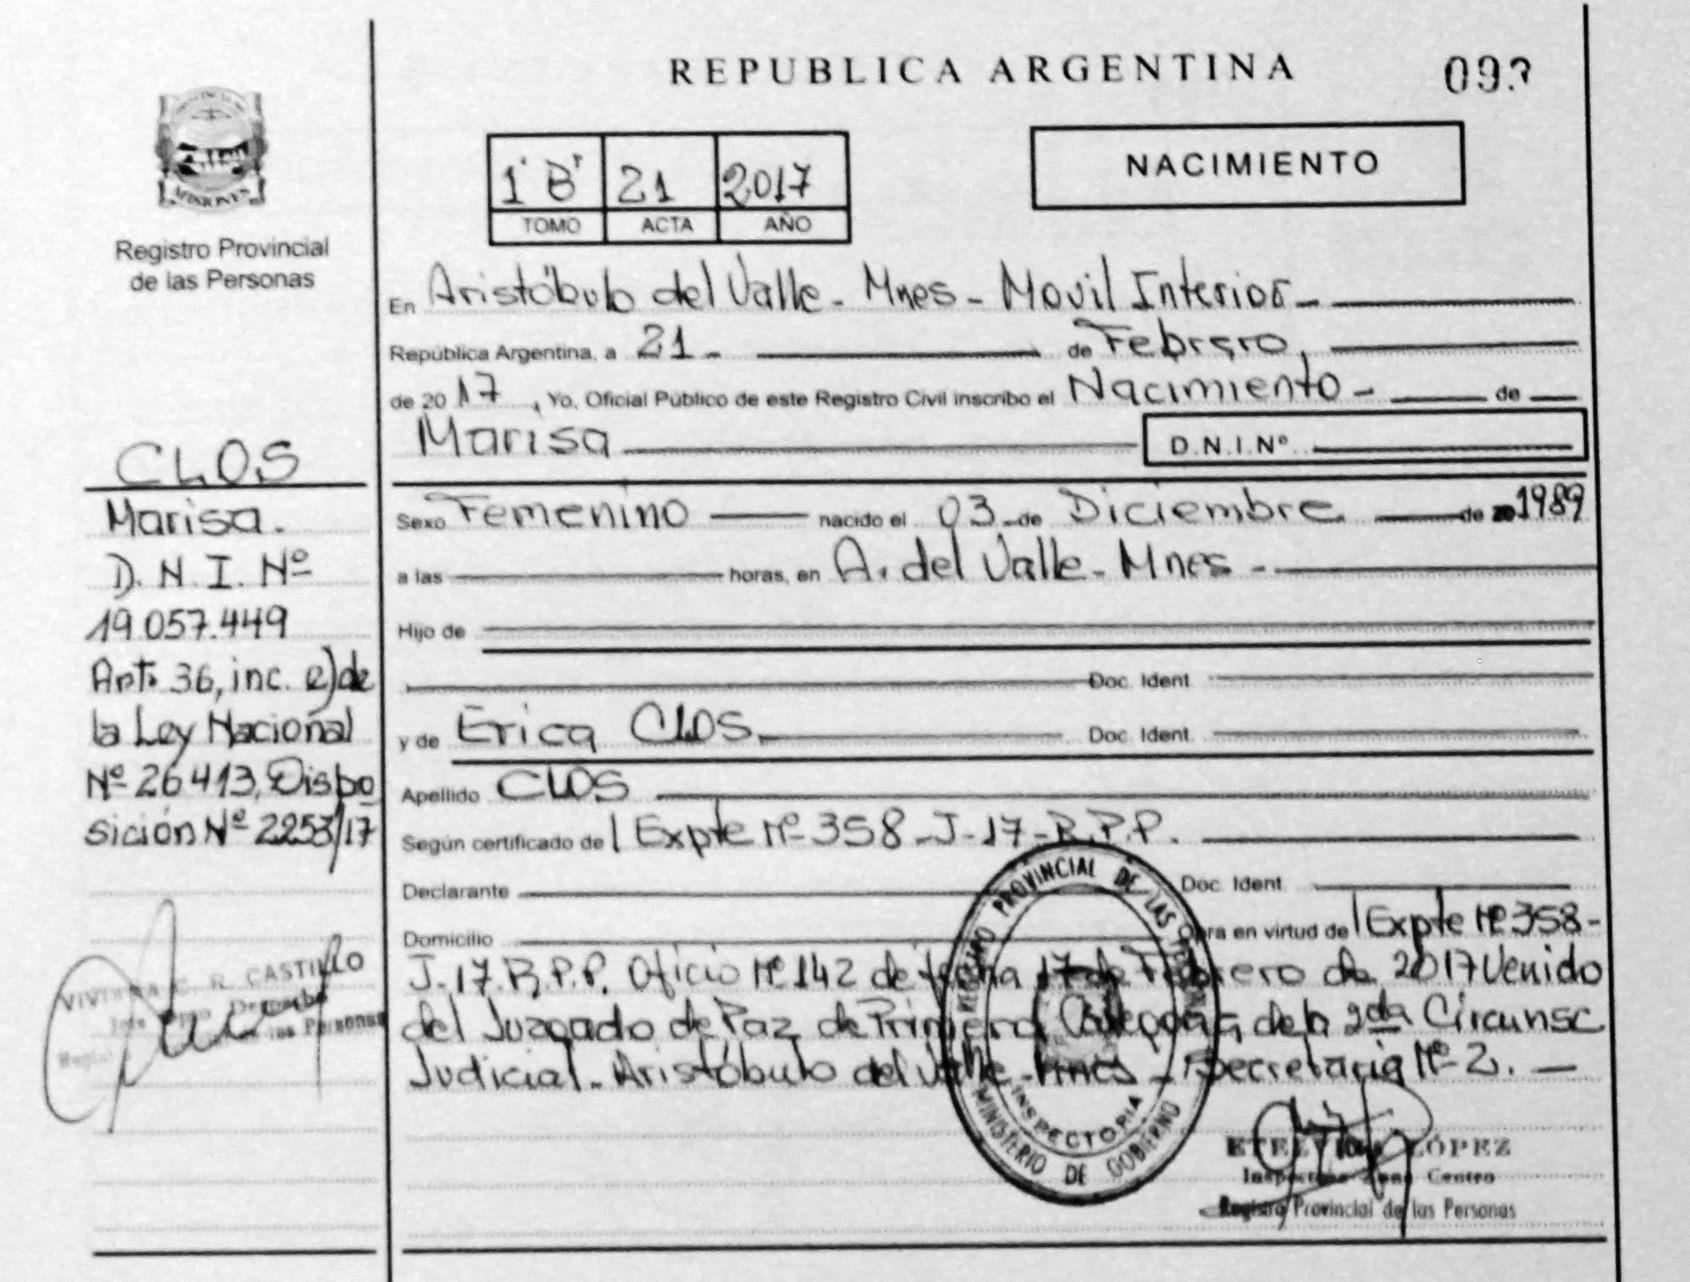 REPUBLICA ARGENTINA
NACIMIENTO
1 "B" 21 2017
TOMO ACTA AÑO
MISIONES
Registro Provincial
de las Personas
En Aristóbulo del Valle - Mnes - Movil Interior -
República Argentina, a 21 - de Febrero,
de 2017, Yo, Oficial Público de este Registro Civil inscribo el Nacimiento - de
Marisa D.N.I.Nº
CLOS
Marisa.
D.N.I. Nº
19.057.449
Art. 36, inc. e) de
la Ley Nacional
Nº 26413, Dispo
sición Nº 2253/17
R. CASTILLO
las Personas
Sexo Femenino nacido el 03 de Diciembre de 1989
a las horas, en A. del Valle - Mnes -
Hijo de
Doc. Ident.
y de Erica CLOS. Doc. Ident.
Apellido CLOS
Según certificado de Expte Nº 358-J-17-R.P.P.
Declarante Doc. Ident.
Domicilio Obra en virtud de Expte Nº 358-
J-17.R.P.P. Oficio Nº 142 de fecha 17 de Febrero de 2017 Venido
del Juzgado de Paz de Primera Categoría, de la 2da Circunsc
Judicial - Aristóbulo del Valle - Mnes - Secretaria Nº 2.
REGISTRO PROVINCIAL DE LAS PERSONAS
INSPECTORIA
MINISTERIO DE GOBIERNO
LÓPEZ
Zona Centro
Registro Provincial de las Personas